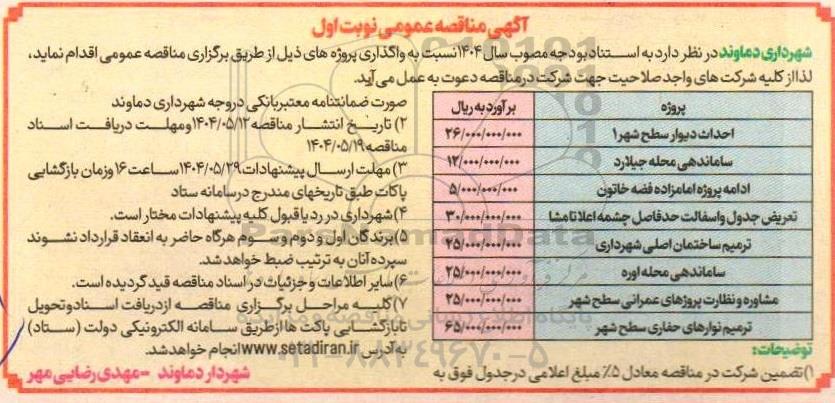 آگهی مناقصه عمومی نوبت اول
شهرداری دماوند در نظر دارد به استناد بودجه مصوب سال ۱۴۰۴ نسبت به واگذاری پروژه های ذیل از طریق برگزاری مناقصه عمومی اقدام نماید،
لذا از کلیه شرکت های واجد صلاحیت جهت شرکت در مناقصه دعوت به عمل می‌آید.
پروژه برآورد به ریال
احداث دیوار سطح شهر۱ ۲۶/۰۰۰/۰۰۰/۰۰۰
ساماندهی محله جیلارد ۱۲/۰۰۰/۰۰۰/۰۰۰
ادامه پروژه امامزاده فضه خاتون ۵/۰۰۰/۰۰۰/۰۰۰
تعریض جدول و اسفالت حدفاصل چشمه اعلا تا مشا ۳۰/۰۰۰/۰۰۰/۰۰۰
ترمیم ساختمان اصلی شهرداری ۲۵/۰۰۰/۰۰۰/۰۰۰
ساماندهی محله اوره ۲۵/۰۰۰/۰۰۰/۰۰۰
مشاوره و نظارت پروژهای عمرانی سطح شهر ۲۵/۰۰۰/۰۰۰/۰۰۰
ترمیم نوارهای حفاری سطح شهر ۶۵/۰۰۰/۰۰۰/۰۰۰
توضیحات:
۱) تضمین شرکت در مناقصه معادل ۵٪ مبلغ اعلامی در جدول فوق به
صورت ضمانتنامه معتبر بانکی در وجه شهرداری دماوند
۲) تاریخ انتشار مناقصه ۱۴۰۴/۰۵/۱۲ و مهلت دریافت اسناد
مناقصه ۱۴۰۴/۰۵/۱۹
۳) مهلت ارسال پیشنهادات ۱۴۰۴/۰۵/۲۹ ساعت ۱۶ و زمان بازگشایی
پاکات طبق تاریخهای مندرج در سامانه ستاد
۴) شهرداری در رد یا قبول کلیه پیشنهادات مختار است.
۵) برندگان اول و دوم و سوم هرگاه حاضر به انعقاد قرارداد نشوند
سپرده آنان به ترتیب ضبط خواهد شد.
۶) سایر اطلاعات و جزئیات در اسناد مناقصه قید گردیده است.
۷) کلیه مراحل برگزاری مناقصه از دریافت اسناد و تحویل
تا بازگشایی پاکت ها از طریق سامانه الکترونیکی دولت (ستاد)
به آدرس www.setadiran.ir انجام خواهد شد.
شهردار دماوند - مهدی رضایی مهر
ParsNamadData
پایگاه اطلاع رسانی مناقصه و مزایده
۰۲۱-۸۸۳۴۹۶۷۰-۵